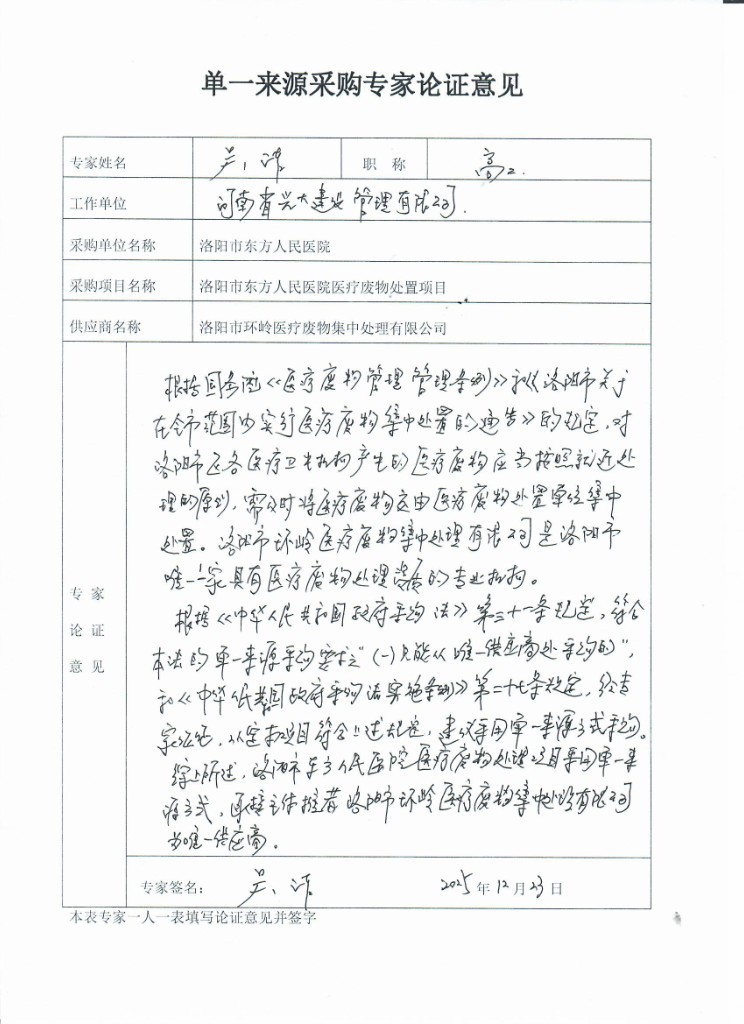 单一来源采购专家论证意见
专家姓名
职称 高工
工作单位 河南省兴大建设管理有限公司.
采购单位名称 洛阳市东方人民医院
采购项目名称 洛阳市东方人民医院医疗废物处置项目
供应商名称 洛阳市环岭医疗废物集中处理有限公司
专家论证意见
根据国务院《医疗废物管理管理条例》和《洛阳市关于
在全市范围内实行医疗废物集中处置的通告》的规定，对
洛阳市区各医疗卫生机构产生的医疗废物应当按照就近处
理的原则，需及时将医疗废物交由医疗废物处置单位集中
处置。洛阳市环岭医疗废物集中处理有限公司是洛阳市
唯一一家具有医疗废物处理资质的专业机构。
根据《中华人民共和国政府采购法》第三十一条规定，符合
本法的单一来源采购要求之“(一)只能从唯一供应商处采购的”，
和《中华人民共和国政府采购法实施条例》第二十七条规定，经专
家论证，认定本项目符合上述规定，建议采用单一来源方式采购。
综上所述，洛阳市东方人民医院医疗废物处理项目采用单一来
源方式，直接推荐洛阳市环岭医疗废物集中处理有限公司
为唯一供应商。
专家签名： 2025年12月23日
本表专家一人一表填写论证意见并签字